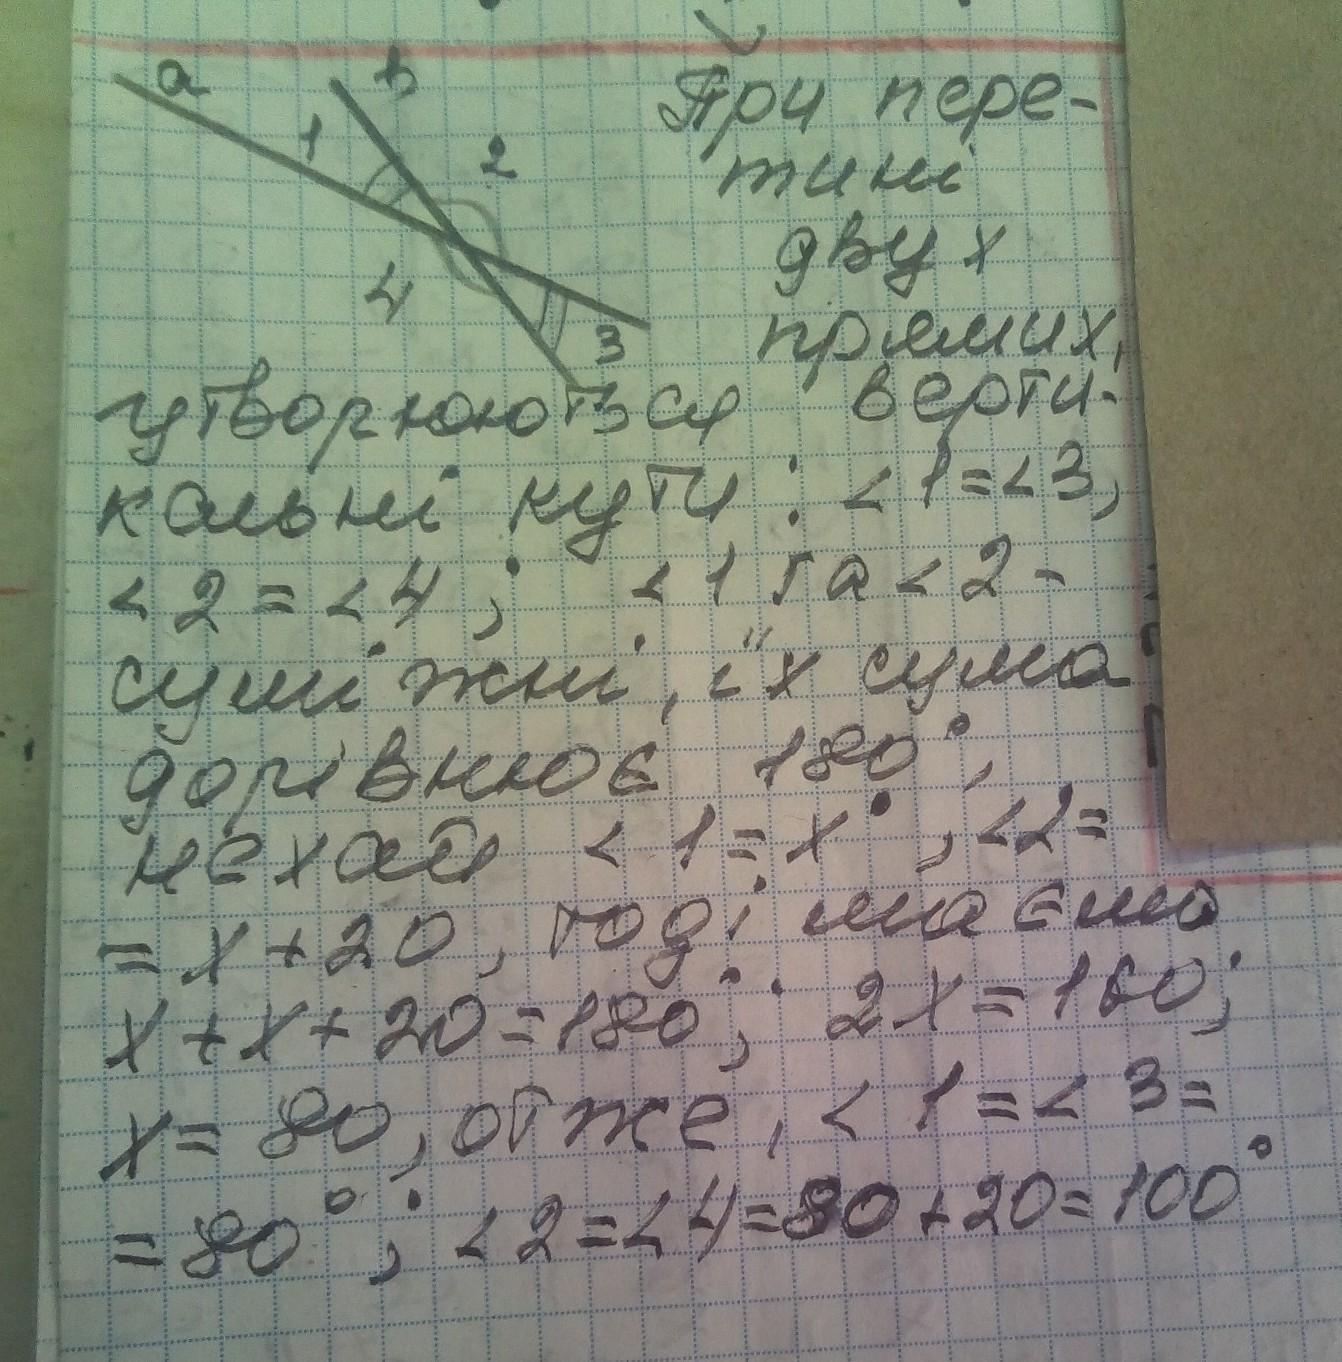 a
b
1
2
4
3
При пере-
тині
двух
прямих,
утворюються верти-
кальні кути: <1=<3,
<2=<4; <1 та <2-
суміжні, їх сума
дорівнює 180°,
нехай <1=x°, <2=
=x+20, тоді маємо
x+x+20=180°; 2x=160;
x=80, отже, <1=<3=
=80°; <2=<4=80+20=100°